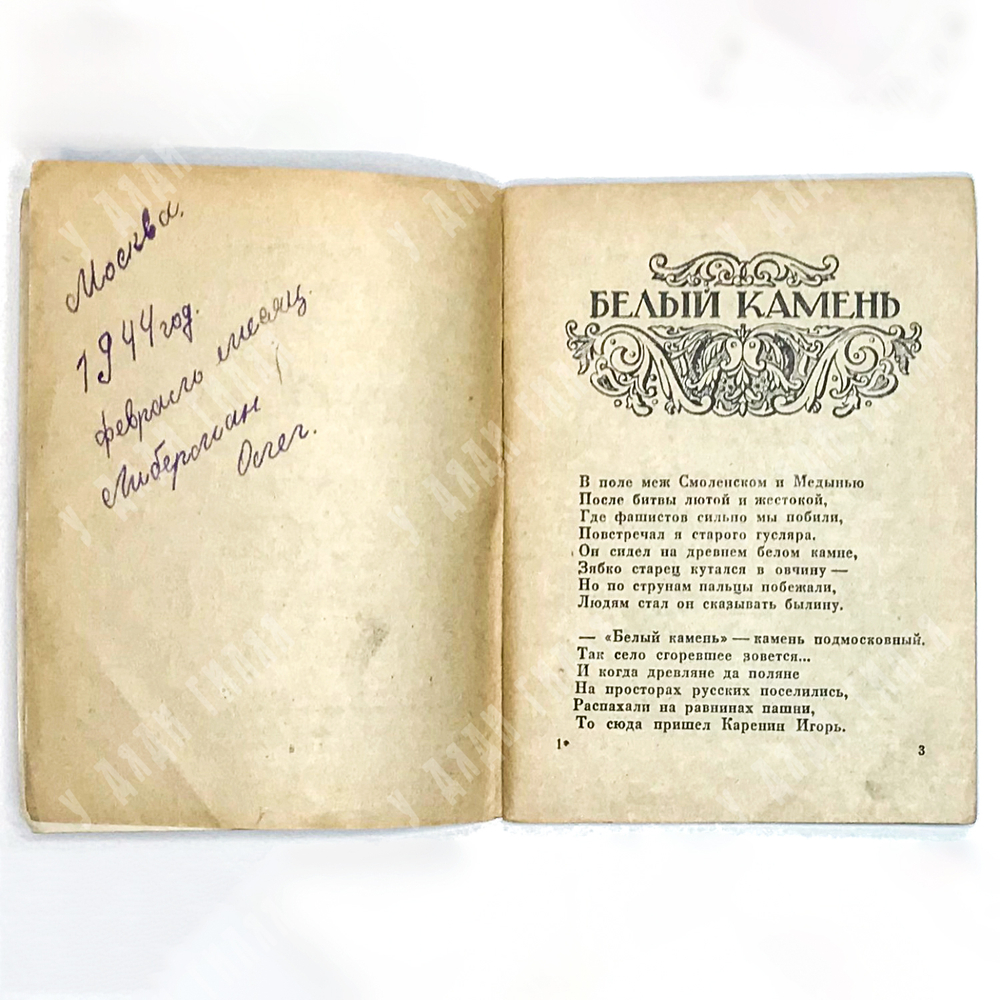 Москва.
1944 год.
февраль месяц.
Либерман
Олег.
БЕЛЫЙ КАМЕНЬ
В поле меж Смоленском и Медынью
После битвы лютой и жестокой,
Где фашистов сильно мы побили,
Повстречал я старого гусляра.
Он сидел на древнем белом камне,
Зябко старец кутался в овчину —
Но по струнам пальцы побежали,
Людям стал он сказывать былину.
— «Белый камень» — камень подмосковный.
Так село сгоревшее зовется...
И когда древляне да поляне
На просторах русских поселились,
Распахали на равнинах пашни,
То сюда пришел Каренин Игорь.
1*
3